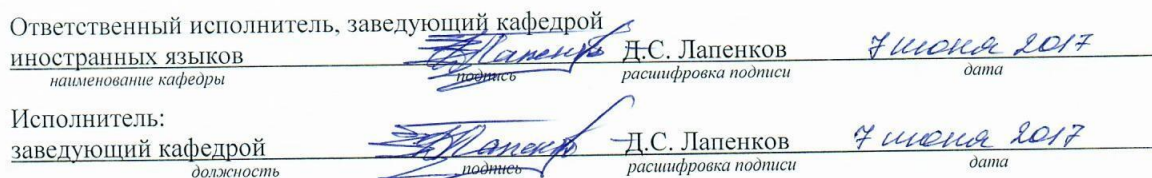 Ответственный исполнитель, заведующий кафедрой
иностранных языков Лапенков Д.С. Лапенков 7 июня 2017
наименование кафедры подпись расшифровка подписи дата
Исполнитель:
заведующий кафедрой Лапенков Д.С. Лапенков 7 июня 2017
должность подпись расшифровка подписи дата